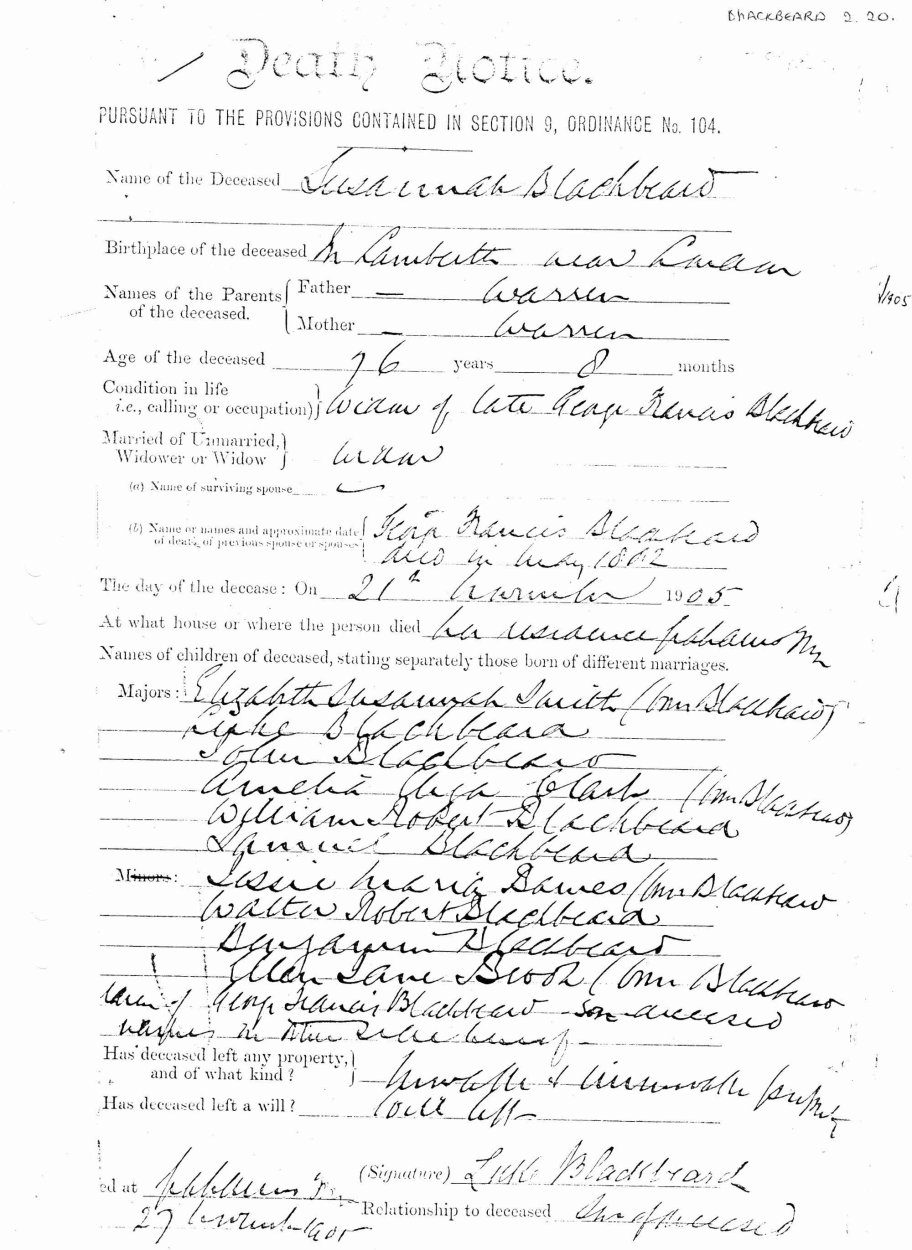 BLACKBEARD 2.20.
Death Notice.
PURSUANT TO THE PROVISIONS CONTAINED IN SECTION 9, ORDINANCE No. 104.
Name of the Deceased Susannah Blackbeard
Birthplace of the deceased In Lambeth near London
Names of the Parents of the deceased. Father — Warren
1905
Mother — Warren
Age of the deceased 76 years 8 months
Condition in life
i.e., calling or occupation) Widow of late George Francis Blackbeard
Married of Unmarried,
Widower or Widow Widow
(a) Name of surviving spouse —
(b) Name or names and approximate date
of death of previous spouse or spouses George Francis Blackbeard
died in May
The day of the decease: On 21st November 1905
At what house or where the person died her residence
Names of children of deceased, stating separately those born of different marriages.
Majors: Elizabeth Susannah Smith (born Blackbeard)
Luke Blackbeard
John Blackbeard
Amelia Eliza Clark (born Blackbeard)
William Robert Blackbeard
Samuel Blackbeard
Minors: Jessie Maria Barnes (born Blackbeard
Walter Robert Blackbeard
Benjamin Blackbeard
Ellen Jane Brook (born Blackbeard
of George Francis Blackbeard son deceased
Has deceased left any property,
and of what kind? Movable & immovable property
Has deceased left a will? Will left
ed at (Signature) Luke Blackbeard
27 November 1905 Relationship to deceased Son of deceased